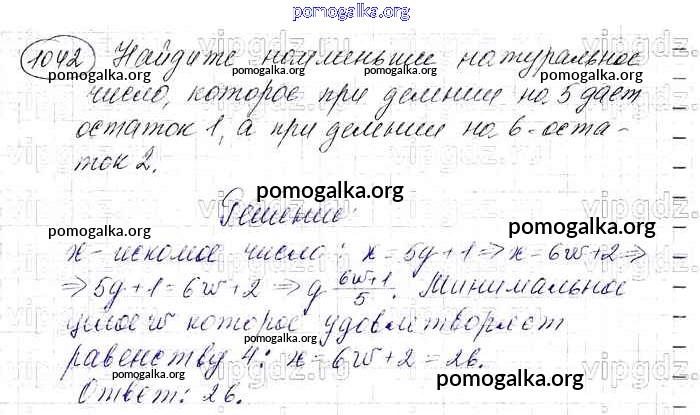 pomogalka.org
1042 Найдите наименьшее натуральное
число, которое при делении на 5 дает
остаток 1, а при делении на 6 - оста-
ток 2.
Решение:
x - искомое число; x = 5y + 1 => x = 6w + 2 =>
=> 5y + 1 = 6w + 2 => y (6w+1)/5. Минимальное
целое w которое удовлетворяет
равенству 4: x = 6w + 2 = 26.
Ответ: 26.
pomogalka.org
pomogalka.org
pomogalka.org
pomogalka.org
pomogalka.org
pomogalka.org
pomogalka.org
pomogalka.org
vipgdz.ru